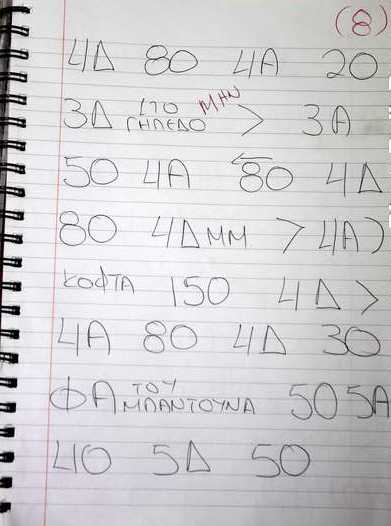 (8)
4Δ 80 4Α 20
3Δ ΣΤΟ ΓΗΠΕΔΟ ΜΗΝ > 3Α
50 4Α ←80 4Δ
80 4ΔΜΜ > 4Α)
ΚΟΦΤΑ 150 4Δ >
4Α 80 4Δ 30
ΦΑ ΤΟΥ ΜΠΑΝΤΟΥΝΑ 50 5Α
40 5Δ 50